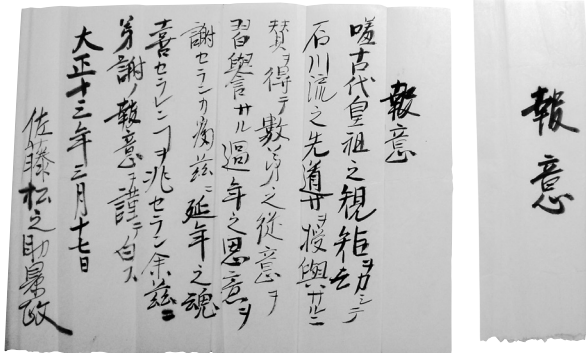 報意
嗟古代皇祖之規矩ヲカシテ
石川流之先道サヲ授與サルニ
賛ヲ得テ數多之従意ヲ
習與言サル過年之恩意ヲ
謝セラン為茲ニ延年之魂
喜セラレンヿヲ兆セラン余茲ニ
謝ノ報意ヲ謹テ白ス
大正十三年三月十七日
佐藤松之助景政
報意